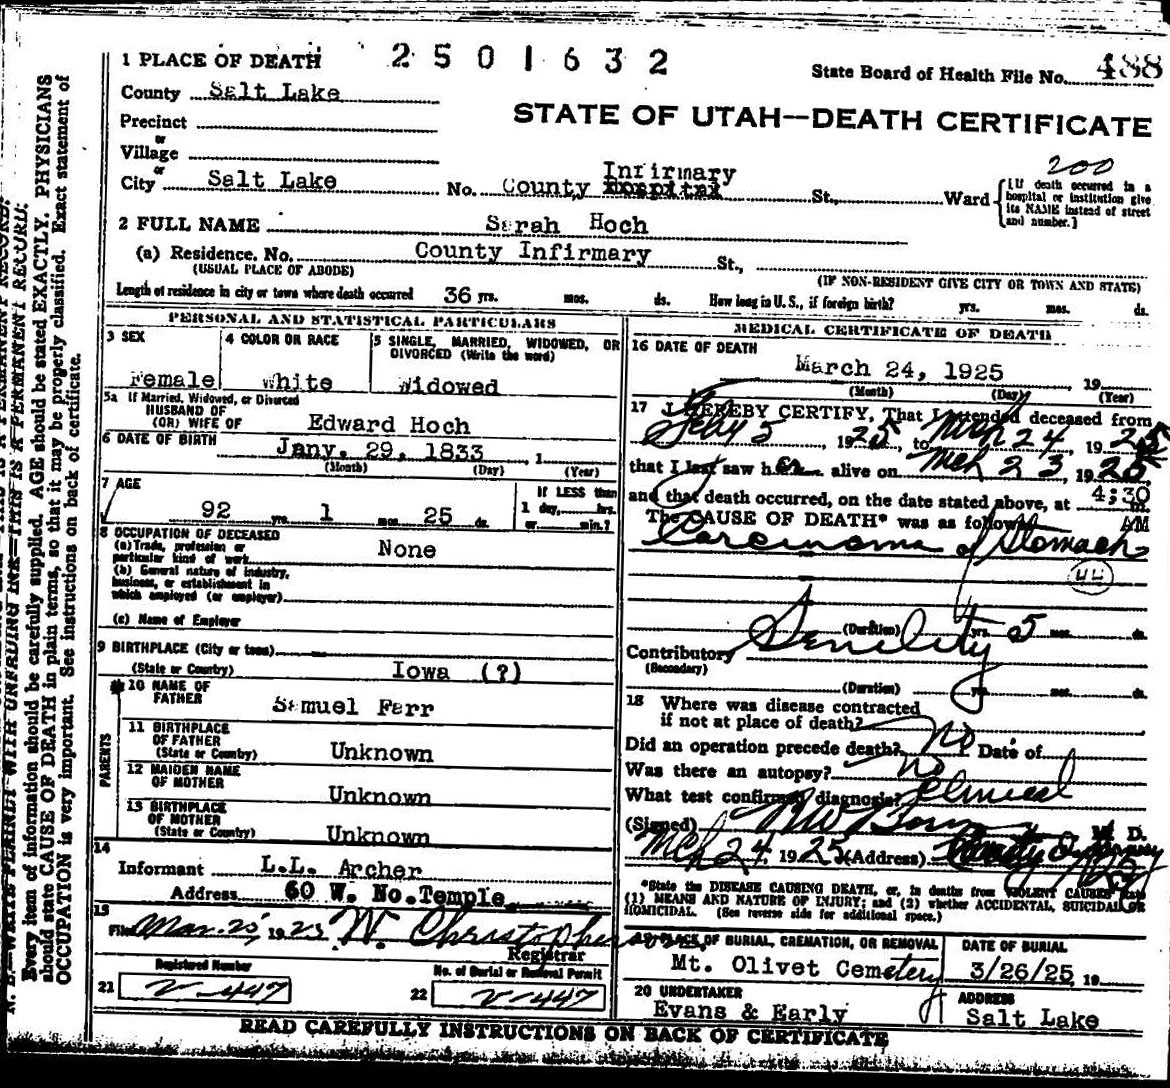 1 PLACE OF DEATH 2501632 State Board of Health File No. 488
County Salt Lake
STATE OF UTAH—DEATH CERTIFICATE
Precinct
or
Village
or
City Salt Lake No. County Hospital Infirmary St., Ward
200
[If death occurred in a hospital or institution give its NAME instead of street and number.]
2 FULL NAME Sarah Hoch
(a) Residence. No. County Infirmary St.,
(USUAL PLACE OF ABODE) (IF NON-RESIDENT GIVE CITY OR TOWN AND STATE)
Length of residence in city or town where death occurred 36 yrs. mos. ds. How long in U. S., if foreign birth? yrs. mos. ds.
PERSONAL AND STATISTICAL PARTICULARS
3 SEX
Female
4 COLOR OR RACE
White
5 SINGLE, MARRIED, WIDOWED, OR
DIVORCED (Write the word)
Widowed
5a If Married, Widowed, or Divorced
HUSBAND OF
(OR) WIFE OF Edward Hoch
6 DATE OF BIRTH Jany. 29, 1833 , 1
(Month) (Day) (Year)
7 AGE
92 yrs. 1 mos. 25 ds.
If LESS than
1 day, hrs.
or min.?
8 OCCUPATION OF DECEASED
(a) Trade, profession or
particular kind of work None
(b) General nature of industry,
business, or establishment in
which employed (or employer)
(c) Name of Employer
9 BIRTHPLACE (City or town)
(State or Country) Iowa (?)
PARENTS
10 NAME OF
FATHER Samuel Farr
11 BIRTHPLACE
OF FATHER
(State or Country) Unknown
12 MAIDEN NAME
OF MOTHER Unknown
13 BIRTHPLACE
OF MOTHER
(State or Country) Unknown
14
Informant L.L. Archer
Address 60 W. No.Temple
15
Filed Mar. 25, 1925 W. Christopherson
Registrar
Registered Number
21 V-447
No. of Burial or Removal Permit
22 V-447
MEDICAL CERTIFICATE OF DEATH
16 DATE OF DEATH
March 24, 1925 19
(Month) (Day) (Year)
17 I HEREBY CERTIFY, That I attended deceased from
Feby 5, 1925, to Mch 24, 1925
that I last saw her alive on Mch 23, 1925
and that death occurred, on the date stated above, at 4:30 m.
AM
The CAUSE OF DEATH* was as follows:
Carcinoma of Stomach
44
(Duration) yrs. 5 mos. ds.
Contributory Senility
(Secondary)
(Duration) yrs. mos. ds.
18 Where was disease contracted
if not at place of death?
Did an operation precede death? No Date of
Was there an autopsy? No
What test confirmed diagnosis? Clinical
(Signed) M. D.
Mch 24, 1925 (Address) County
*State the DISEASE CAUSING DEATH, or, in deaths from VIOLENT CAUSES, state
(1) MEANS AND NATURE OF INJURY; and (2) whether ACCIDENTAL, SUICIDAL OR
HOMICIDAL. (See reverse side for additional space.)
19 PLACE OF BURIAL, CREMATION, OR REMOVAL
Mt. Olivet Cemetery
DATE OF BURIAL
3/26/25, 19
20 UNDERTAKER
Evans & Early
ADDRESS
Salt Lake
READ CAREFULLY INSTRUCTIONS ON BACK OF CERTIFICATE
N. B.—WRITE PLAINLY WITH UNFADING INK—THIS IS A PERMANENT RECORD.
Every item of information should be carefully supplied. AGE should be stated EXACTLY. PHYSICIANS
should state CAUSE OF DEATH in plain terms, so that it may be properly classified. Exact statement of
OCCUPATION is very important. See instructions on back of certificate.